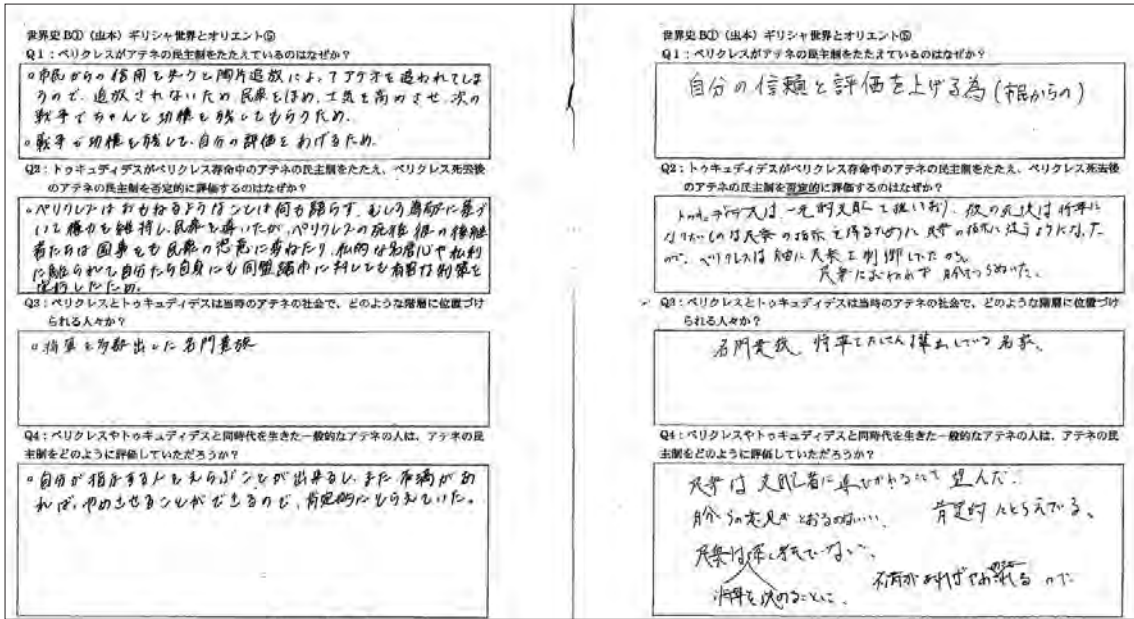 世界史B① (出本) ギリシャ世界とオリエント⑤
Q1:ペリクレスがアテネの民主制をたたえているのはなぜか?
市民からの信用を失うと陶片追放によってアテネを追われてしま
うので、追放されないため民衆をほめ、士気を高めさせ、次の
戦争でちゃんと功績を残してもらうため。
戦争で功績を残して、自分の評価をあげるため。
Q2:トゥキュディデスがペリクレス存命中のアテネの民主制をたたえ、ペリクレス死去後
のアテネの民主制を否定的に評価するのはなぜか?
ペリクレスはおもねるようなことは何も語らず、むしろ高邁に基づ
いて権力を維持し、民衆を導いたが、ペリクレスの死後彼の後継
者たちは国事をも民衆の恣意に委ねたり、私的な名誉心や私利
に駆られて自分たち自身にも同盟諸市に対しても有害な政策を
実行したため。
Q3:ペリクレスとトゥキュディデスは当時のアテネの社会で、どのような階層に位置づけ
られる人々か?
将軍を多数出した名門貴族
Q4:ペリクレスやトゥキュディデスと同時代を生きた一般的なアテネの人は、アテネの民
主制をどのように評価していただろうか?
自分が指示する人をえらぶことが出来るし、また不満があ
れば、やめさせることができるので、肯定的にとらえていた。
世界史B① (出本) ギリシャ世界とオリエント⑤
Q1:ペリクレスがアテネの民主制をたたえているのはなぜか?
自分の信頼と評価を上げる為(市民からの)
Q2:トゥキュディデスがペリクレス存命中のアテネの民主制をたたえ、ペリクレス死去後
のアテネの民主制を否定的に評価するのはなぜか?
は、一元的支配
民衆の指示を得るために民衆の指示に従うようになった
ので、ペリクレスは自由に民衆を制御していたから。
民衆に
Q3:ペリクレスとトゥキュディデスは当時のアテネの社会で、どのような階層に位置づけ
られる人々か?
名門貴族、将軍をたくさん輩出している名家。
Q4:ペリクレスやトゥキュディデスと同時代を生きた一般的なアテネの人は、アテネの民
主制をどのように評価していただろうか?
民衆は支配者に導びかれることを望んだ
自分らの意見がとおる 肯定的にとらえてる。
民衆は深く考えていない。
不満があればやめ ので
将軍を決めることに、